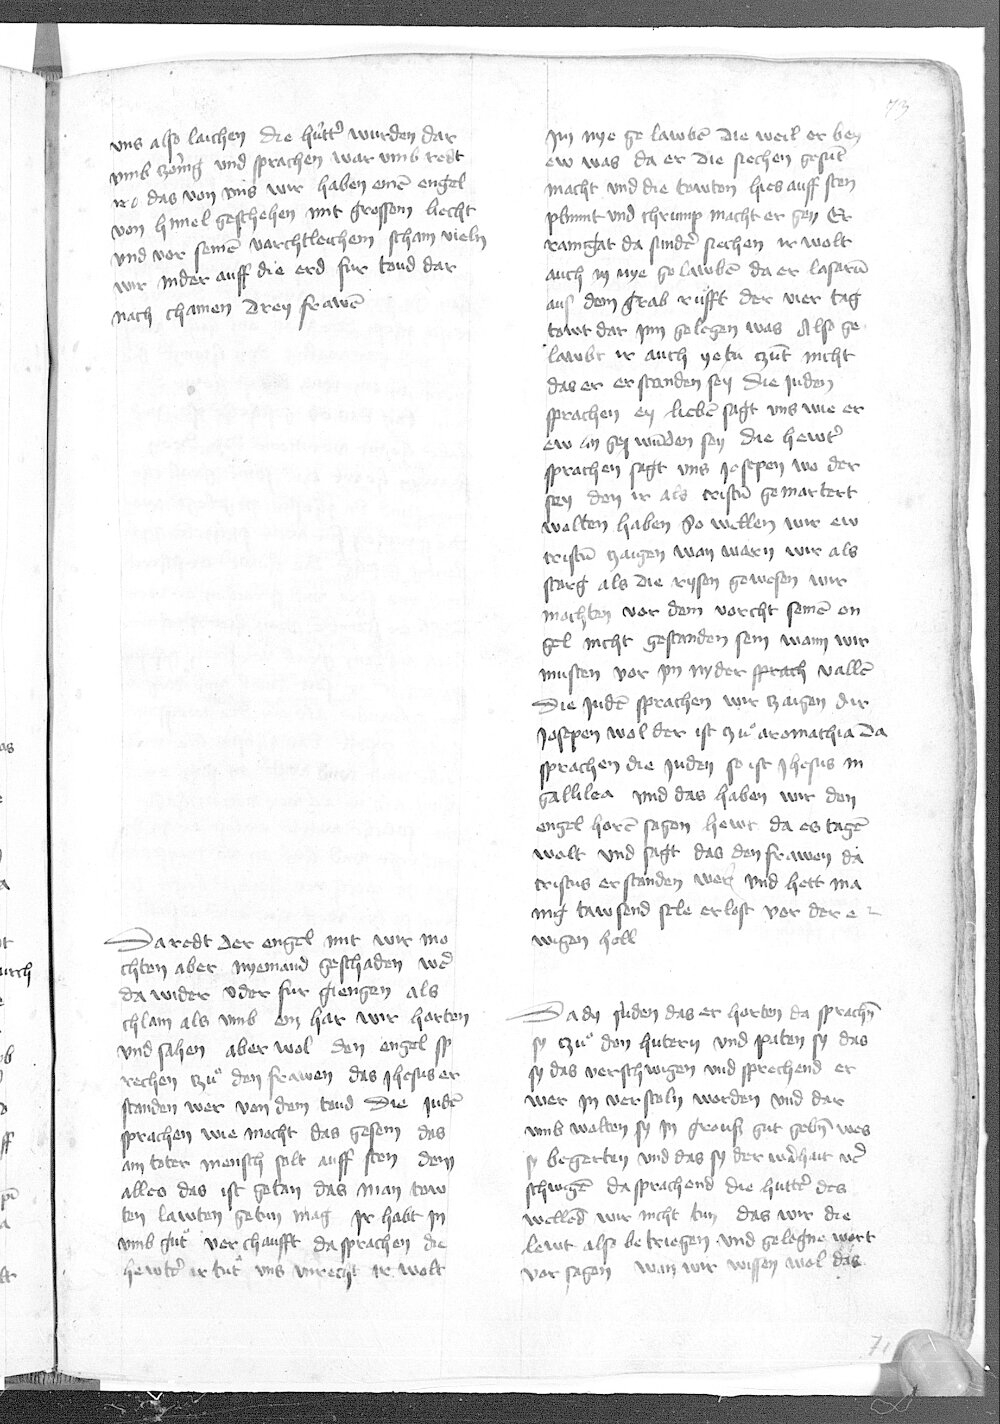 73
vns also laichen die hutt͛ wurden dar
vmb zornig vnd sprachen war vmb redt
ir das von vns wir haben einē engel
von himel geschehen mit grossem liecht
vnd vor seinē vorchtleichem scham vieln
wir nider auff die erd fur toud dar
nach chamen drey frawē
Da redt der engel mit wir mo
chten aber nyemand geschaden wed͛
da wider oder fur giengen als
chlain als vmb ein har wir horten
vnd sahen aber wol den engel sp
rechen czu den frawen das Jhesus er
standen wer von dem toud Die judē
sprachen wie mocht das gesein das
ain toter mensch solt auff sten denn
alles das ist getan das man tow
ten lawten getun mag Ir habt in
vmb gut verchaufft da sprachen die
hewt͛ ir tut vns vnrecht ir wolt
im nye ge lawbē die weil er bey
ew was da er die siechen gesūt
macht vnd die towten hies auff sten
plinnt vnd chrump macht er gen Er
rainigat da sunder siechen ir wolt
auch in nye ge lawbē da er lasarū
aus dem grab rufft der vier tag
towt dar inn gelegen was Also ge
lawbt ir auch yetz czūt nicht
das er er standen sey Die juden
sprachen ey liebē sagt vns wie er
ew an gey wūden sey die hewt͛
sprachen sagt vns Josepen wo der
sey den ir als cristū gemartert
wolten haben So wellen wir ew
cristū czaigen wan warn wir als
starg als die rysen gewesen wir
mochten vor dem vorcht seinē en
gel nicht gestanden sein wann wir
musten vor ym nyder sprach vallē
Die judē sprachen wir czaigen dir
Josepen wol der ist czu aromathia Da
sprachen die juden so ist Jhesus in
gallilea vnd das haben wir den
engel horē sagen hewt da es tagē
wolt vnd sagt das den frawen da
cristus er standen wer vnd hett ma
nig tawsend sele erlost vor der e
wigen holl
Da dy juden das er horten da sprachn̄
sy czu den hutern vnd paten sy das
sy das verschwigen vnd sprechend er
wer in verstoln worden vnd dar
vmb wolten sy in grouss gut gebn̄ wes
sy begerten vnd das sy der warhait v͛
schwigē da sprachend die hutt͛ des
welled wir nicht tun das wir die
lewt also be triegen vnd gelogne wort
vor sagen wan wir wissen wol das
71